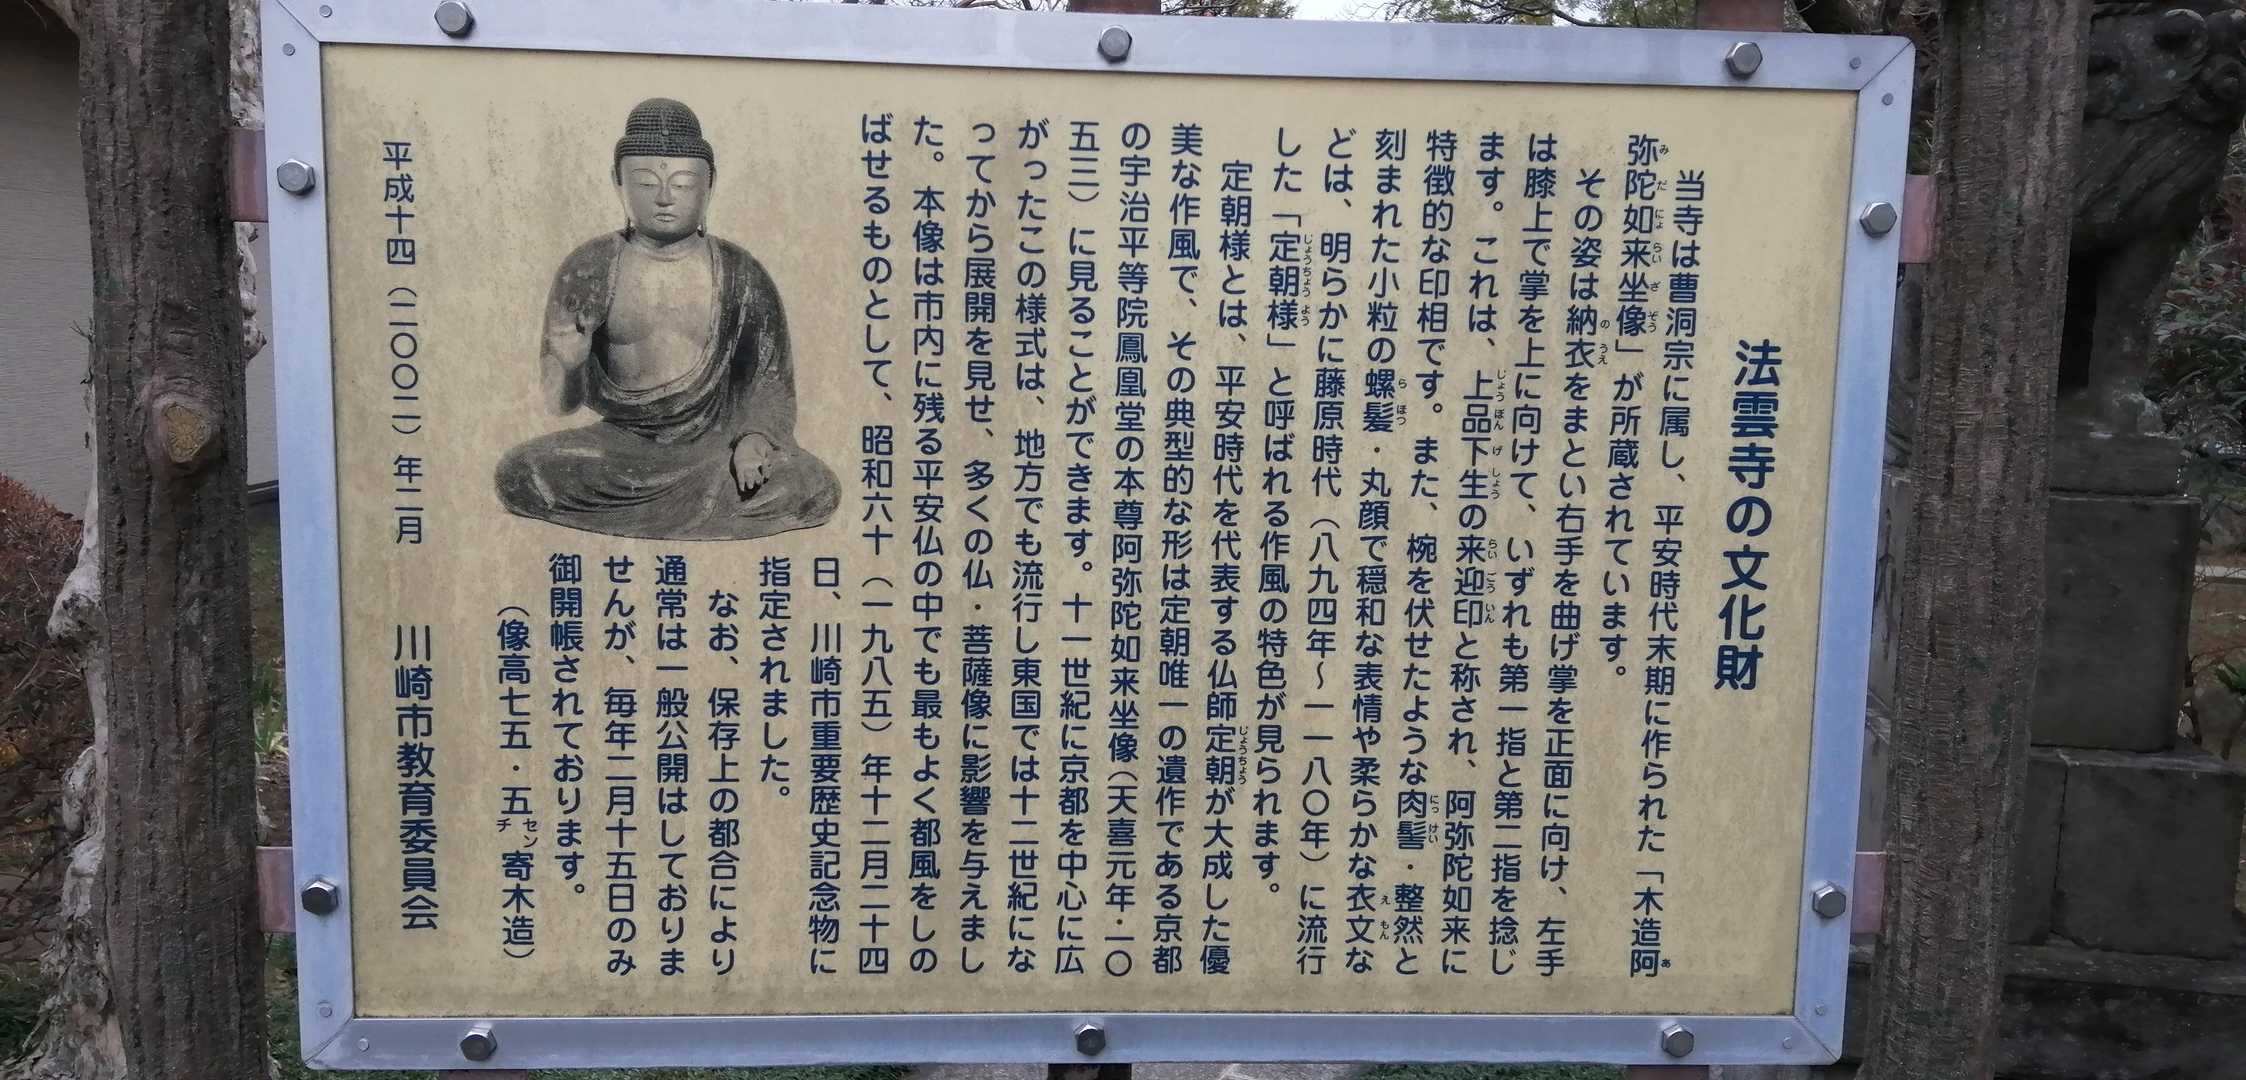 法雲寺の文化財
当寺は曹洞宗に属し、平安時代末期に作られた「木造阿
弥陀如来坐像」が所蔵されています。
その姿は納衣をまとい右手を曲げ掌を正面に向け、左手
は膝上で掌を上に向けて、いずれも第一指と第二指を捻じ
ます。これは、上品下生の来迎印と称され、阿弥陀如来に
特徴的な印相です。また、椀を伏せたような肉髻・整然と
刻まれた小粒の螺髪・丸顔で穏和な表情や柔らかな衣文な
どは、明らかに藤原時代（八九四年～一一八〇年）に流行
した「定朝様」と呼ばれる作風の特色が見られます。
定朝様とは、平安時代を代表する仏師定朝が大成した優
美な作風で、その典型的な形は定朝唯一の遺作である京都
の宇治平等院鳳凰堂の本尊阿弥陀如来坐像（天喜元年・一〇
五三）に見ることができます。十一世紀に京都を中心に広
がったこの様式は、地方でも流行し東国では十二世紀にな
ってから展開を見せ、多くの仏・菩薩像に影響を与えまし
た。本像は市内に残る平安仏の中でも最もよく都風をしの
ばせるものとして、昭和六十（一九八五）年十二月二十四
日、川崎市重要歴史記念物に
指定されました。
なお、保存上の都合により
通常は一般公開はしておりま
せんが、毎年二月十五日のみ
御開帳されております。
（像高七五・五センチ 寄木造）
平成十四（二〇〇二）年二月 川崎市教育委員会